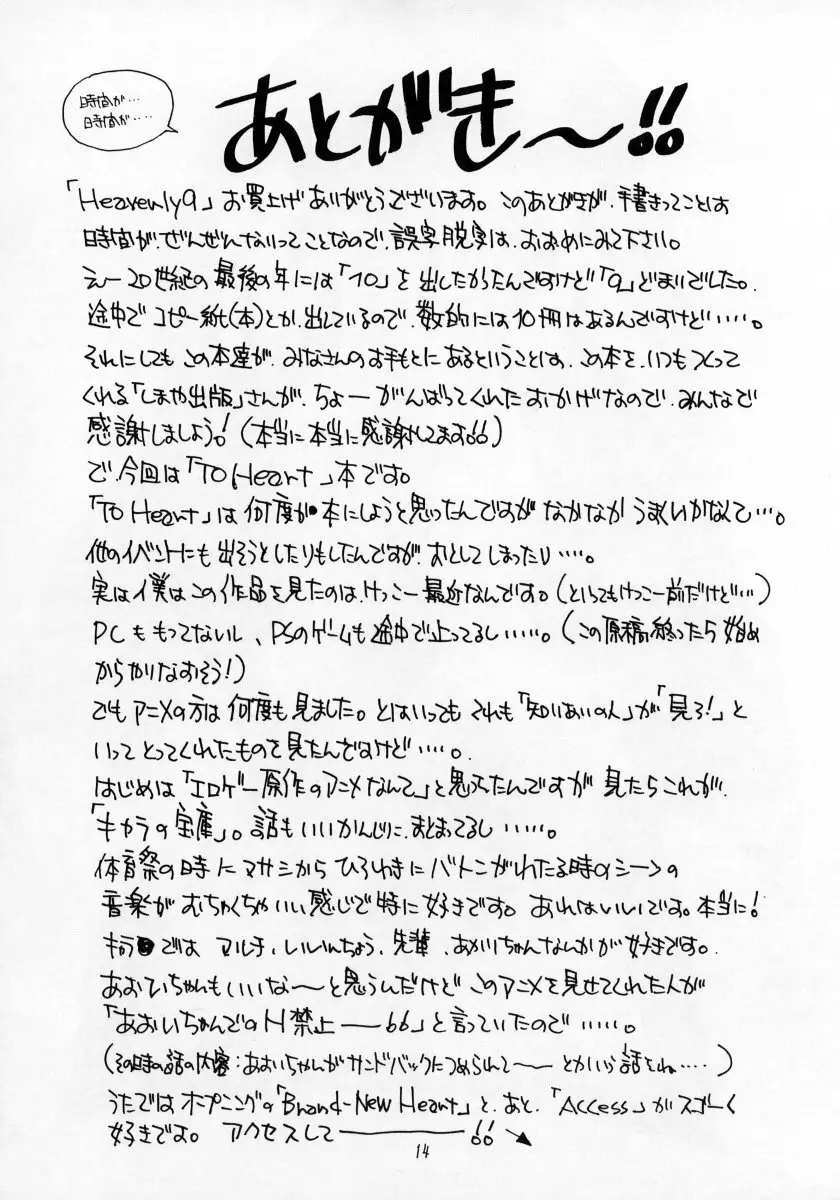 時間が…
時間が‥‥
あとがき〜!!
「Heavenly9」お買上げありがとうございます。このあとがきが、手書きってことは
時間が、ぜんぜんないってことなので、誤字脱字は、おおめにみて下さい。
えー20世紀の最後の年には「10」を出したかったんですけど「9」どまりでした。
途中でコピー紙(本)とか、出しているので、数的には10冊はあるんですけど‥‥‥。
それにしてもこの本達が、みなさんのお手もとにあるということは、この本を、いつもつくって
くれる「しまや出版」さんが、ちょーがんばってくれたおかげなので、みんなで
感謝しましよう!(本当に本当に感謝してます!!)
で、今回は「TO Heart」本です。
「TO Heart」は何度か本にしようと思ったんですがなかなかうまくいかなくて…。
他のイベントにも出そうとしたりもしたんですが、おとしてしまったり‥‥。
実は僕はこの作品を見たのは、けっこー最近なんです。(といってもけっこー前だけど…)
PCももってないし、PSのゲームも途中で止ってるし‥‥‥。(この原稿終ったら始め
からやりなおそう!)
でもアニメの方は何度も見ました。とはいってもそれも「知りあいの人」が「見ろ!」と
いってとってくれたものを見たんですけど‥‥。
はじめは「エロゲー原作のアニメなんて」と思ってたんですが見たらこれが、
「キャラの宝庫」。話もいいかんじに、まとまってるし‥‥‥。
体育祭の時にマサシからひろゆきにバトンがわたる時のシーンの
音楽がむちゃくちゃいい感じで特に好きです。あれはいいです。本当に!
キャラでは マルチ、いいんちょう、先輩、あかりちゃんなんかが好きです。
あおいちゃんもいいな〜と思うんだけどこのアニメを見せてくれた人が
「あおいちゃんでのH禁止――!!」と言っていたので‥‥‥。
(その時の話の内容:あおいちゃんがサンドバックにつめられて――とかいう話をね‥‥)
うたではオープニングの「Brand-New Heart」と、あと、「Access」がスゴーく
好きです。アクセスして――――!!
14